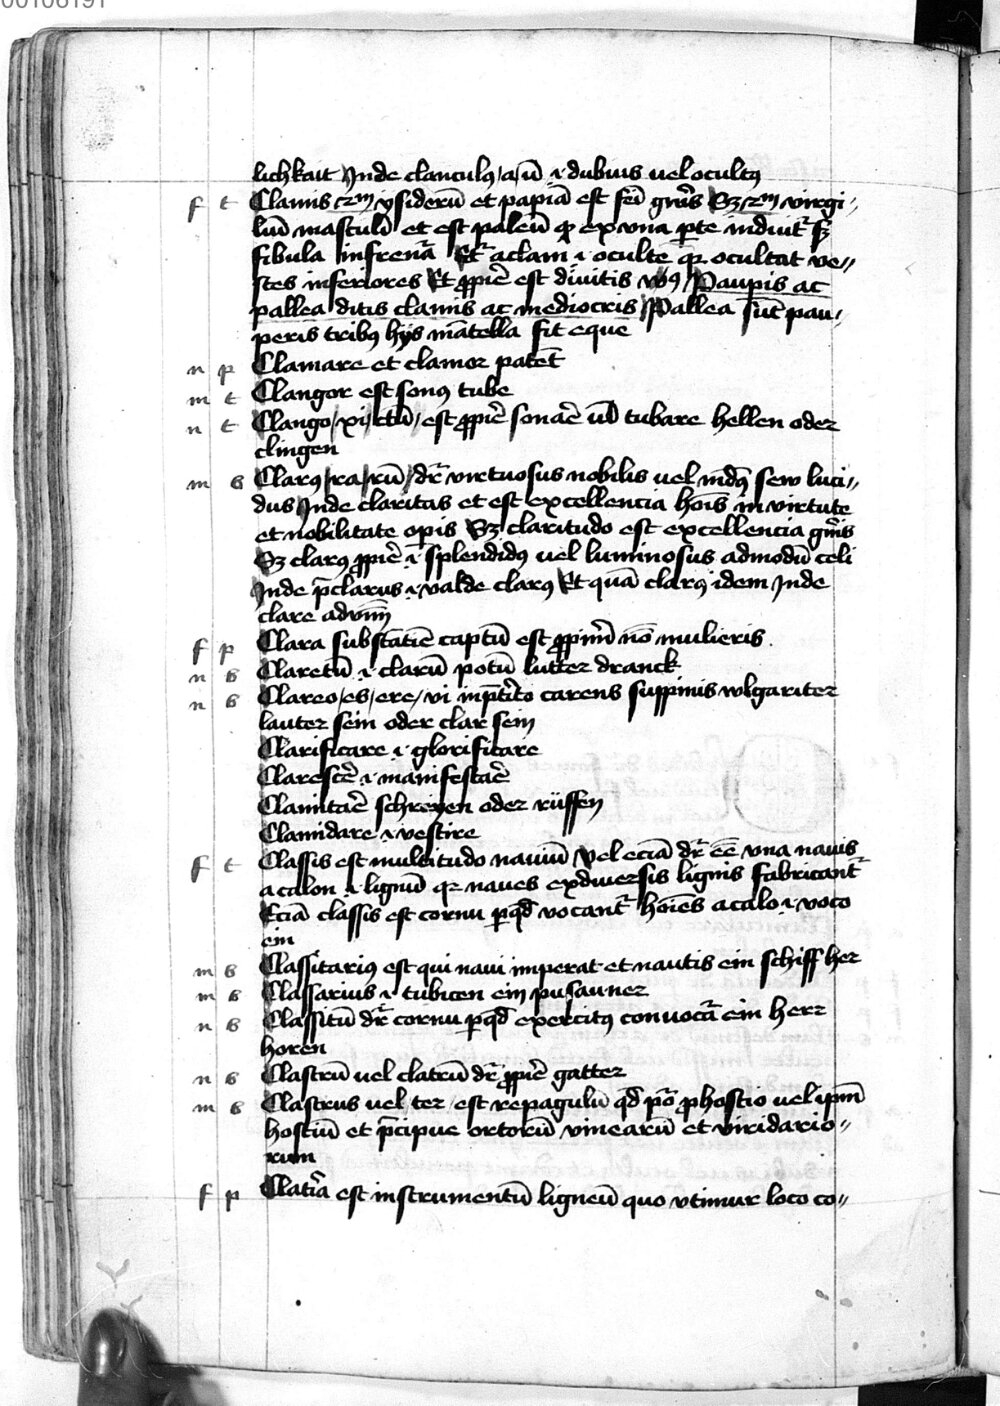 00106191
lichkait Inde clanculꝯ /a /ū ·i· dubius vel ocultꝯ
f t Clamis ẜm ysiderū et papiā est fēi gn̄is Sꝫ ẜm virgi-
liū masculi et est paleū qͥ ex vna ꝑte induit᷑ sꝫ
fibula infrenat᷑ Et᷑ a clam ·i· oculte qꝛ ocultat ve-
stes inferiores Et ꝓpͥe est divitis vꝰ Paupis ac
pallea ditis clamis ac mediocris Pallea sūt pau-
peris tribꝯ hijs mātella fit eque
n p Clamare et clamor patēt
m t Clangor est sonꝯ tube
n t Clango /xi /ctū / est ꝓpͥe sonaē ul̄ tubare hellen oder
clingen
m s Clarꝯ /ra /rū / dr̄ virtuosus nobilis vel mūdꝯ sew luci-
dus Inde claritas et est excellencia hoīs in virtute
et nobilitate opis Sꝫ claritudo est excellencia gn̄is
Sꝫ clarꝯ ꝓpͥe ·i· splendidꝯ vel luminosus admodū celi
Inde p̄clarus ·i· valde clarꝯ Et quā clarꝯ idem Inde
clare adv̄m
f p Clara substātie captū est ꝓpͥm nō mulieris
n s Claretū ·i· clarū potū lutter dranck
n s Clareo /es /ere /vi inp̄tito carens suppinis wlgariter
lauter sein oder clar sein
Clarificare ·i· glorificare
Clarescē ·i· manifestaē
Clamitaē schreyen oder rüffen
Clamidare ·i· vestire
f t Classis est multitudo naviū Vel eciā dr̄ eē vna navis
a calon ·i· lignū qꝛ naves ex diversis lignis fabricant᷑
Eciā classis est cornu ꝑ qd̄ vocant᷑ hoīes a calo ·i· voco
ein
m s Classitariꝯ est qui navi imperat et nautis ein schiff her
m s Classarius ·i· tubicen ein pusauner
n s Classitū dr̄ cornu ꝑ qd̄ exercitꝯ convocat᷑ ein herr
horen
n s Clastrū vel clatrū dr̄ ꝓpͥe gatter
m s Clastrus vel /ter / est repagulū qd̄ pōt᷑ ꝓ hostio vel ipm̄
hostiū et p̄cipue ortorū vinearū et viridario-
rum
f p Clatra est instrumentū ligneū quo vtimur loco co-